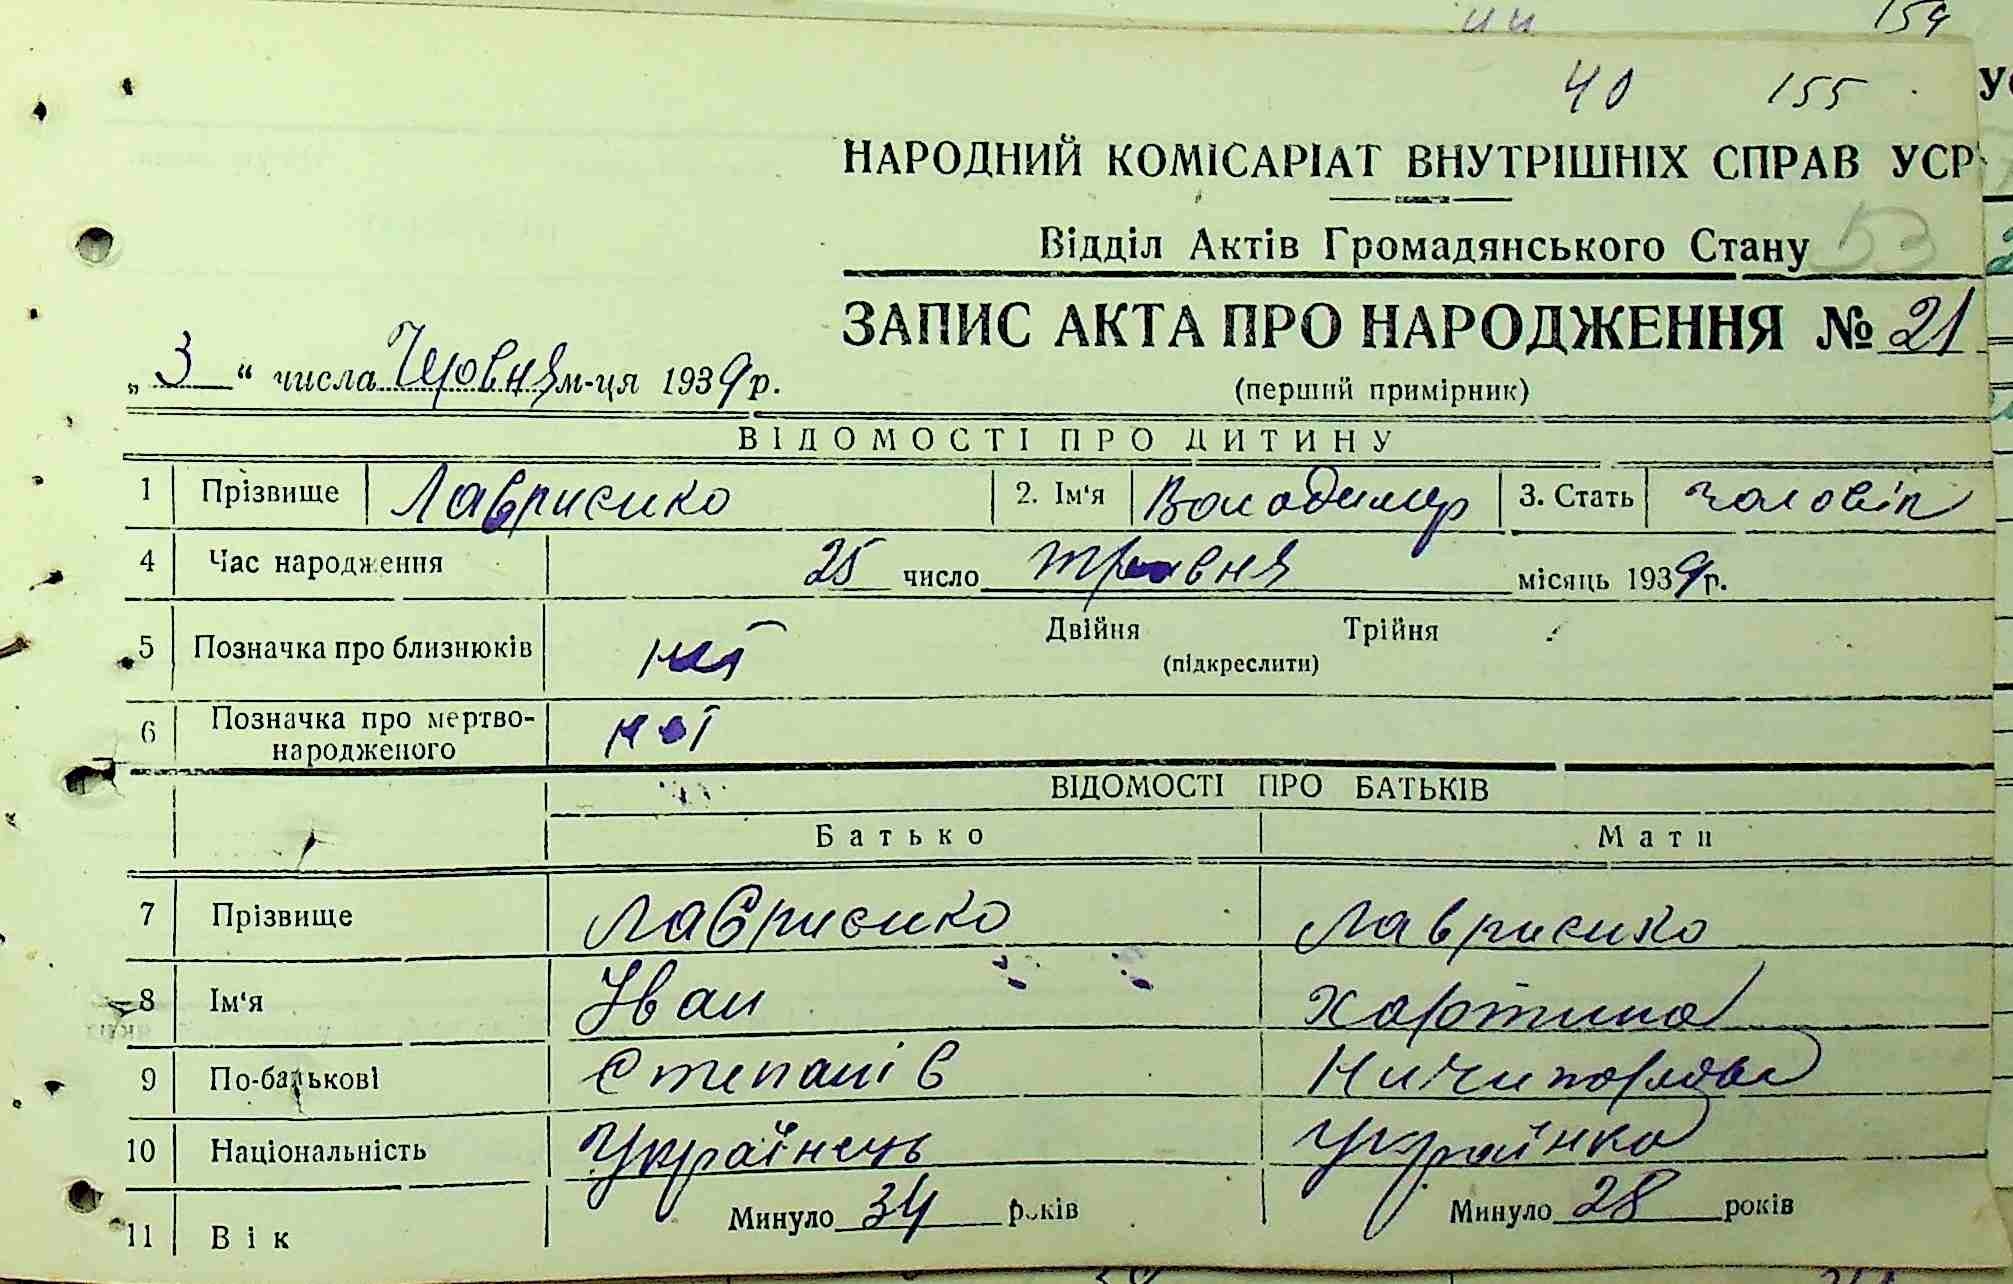 154
40 155
НАРОДНИЙ КОМІСАРІАТ ВНУТРІШНІХ СПРАВ УСР
Відділ Актів Громадянського Стану 53
ЗАПИС АКТА ПРО НАРОДЖЕННЯ № 21
„ 3 “ числа Червня м-ця 1939 р.
(перший примірник)
ВІДОМОСТІ ПРО ДИТИНУ
1 Прізвище Лаврисенко 2. Ім'я Володимир 3. Стать чоловіч
4 Час народження 25 число травня місяць 1939 р.
5 Позначка про близнюків ні Двійня Трійня
(підкреслити)
6 Позначка про мертво-
народженого ні
ВІДОМОСТІ ПРО БАТЬКІВ
Батько Мати
7 Прізвище Лаврисенко Лаврисенко
8 Ім'я Іван Хартина
9 По-батькові Степанів Ничипорівна
10 Національність Українець Українка
11 Вік Минуло 34 років Минуло 28 років